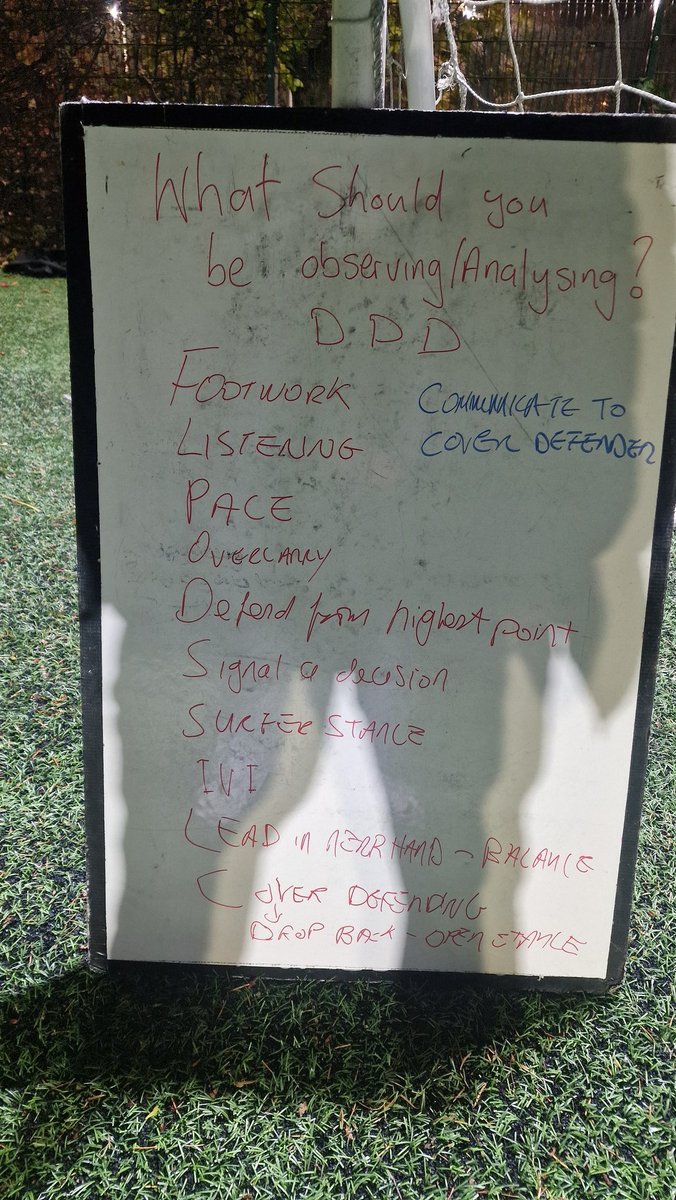 What Should you
be observing/Analysing?
D D D
FOOTWORK
COMMUNICATE TO
LISTENING
COVER DEFENDER
PACE
OVERCARRY
Defend from highest point
Signal a decision
SURFER STANCE
IVI
LEAD in NEAR HAND - BALANCE
COVER DEFENDING
DROP BACK - OPEN STANCE